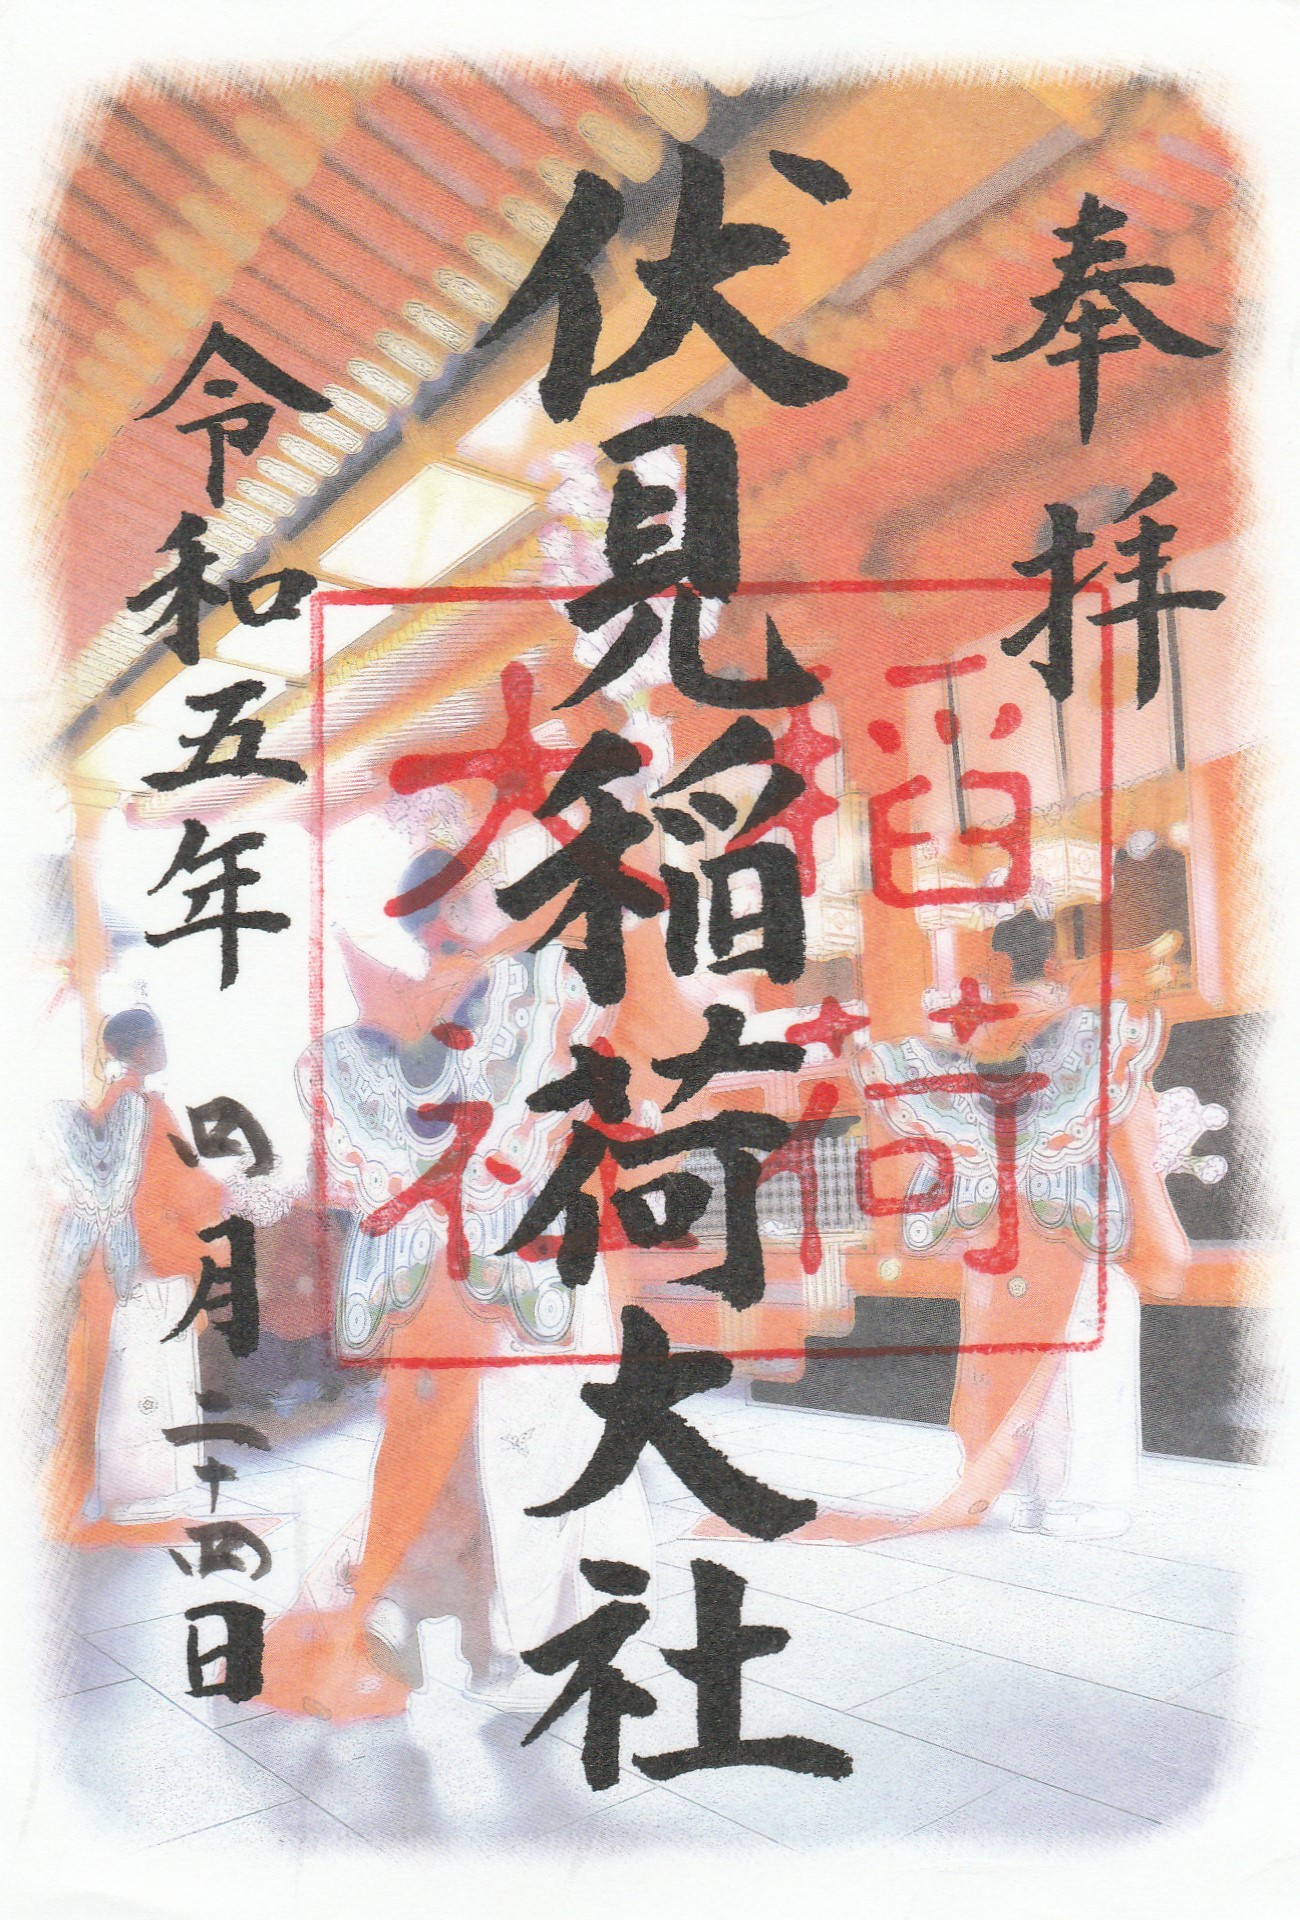 奉拝
伏見稲荷大社
稲荷
大社
令和五年四月二十四日